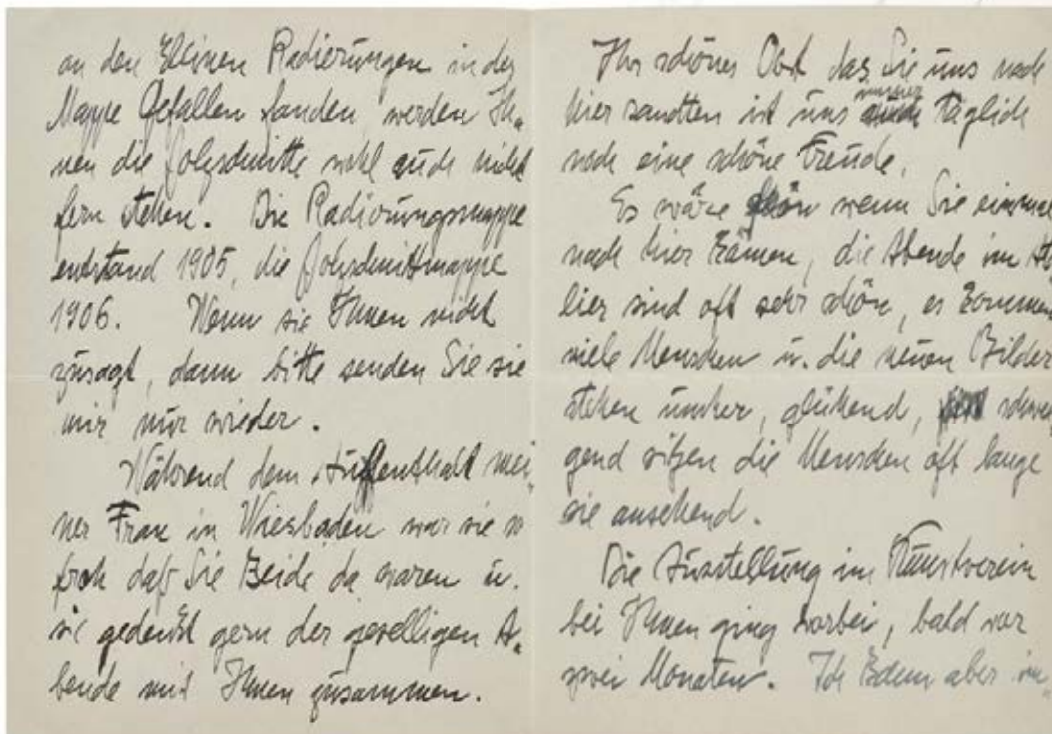 an den kleinen Radierungen in der
Mappe Gefallen fanden werden Ih„
nen die Holzschnitte wohl auch nicht
fern stehen. Die Radierungsmappe
entstand 1905, die Holzschnittmappe
1906. Wenn sie Ihnen nicht
zusagt, dann bitte senden Sie sie
mir nur wieder.
Während dem Aufenthalt mei„
ner Frau in Wiesbaden war sie so
froh daß Sie Beide da waren u.
sie gedenkt gern der geselligen A„
bende mit Ihnen zusammen.
Ihr schönes Obst das Sie uns nach
hier sandten ist uns immer täglich
noch eine schöne Freude.
Es wäre schön wenn Sie einmal
nach hier kämen, die Abende im At
lier sind oft sehr schön, es kommen
viele Menschen u. die neuen Bilder
stehen umher, glühend, schwei
gend sitzen die Menschen oft lange
sie ansehend.
Die Ausstellung im Kunstverein
bei Ihnen ging vorbei, bald vor
zwei Monaten. Ich kam aber im„